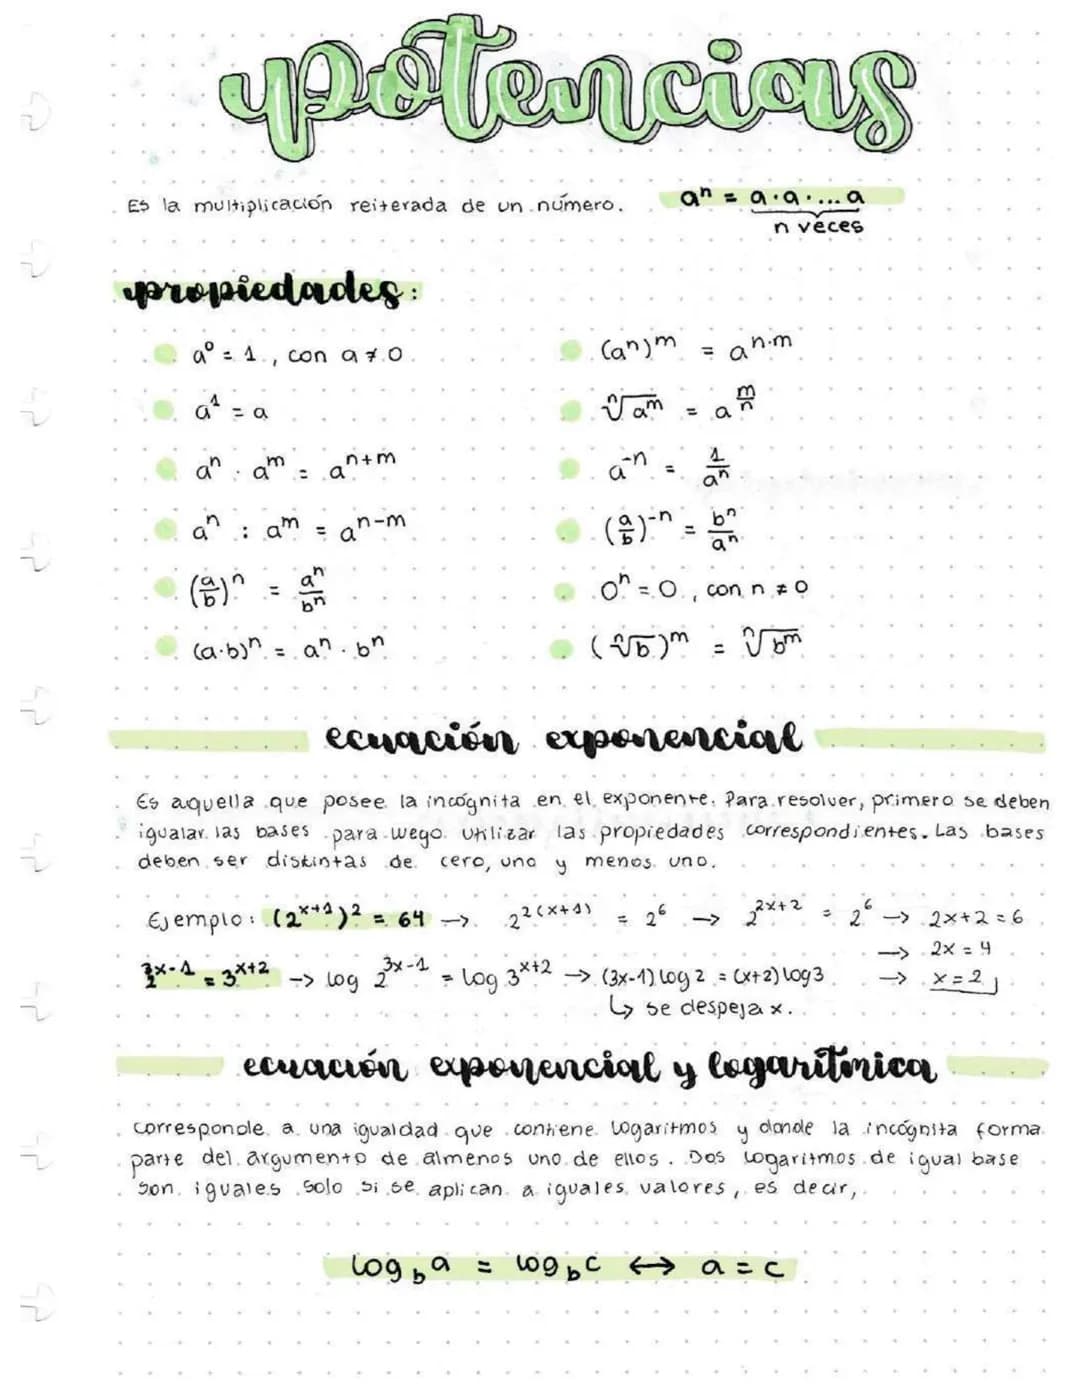 potencias
Es la multiplicación reiterada de un número. aⁿ = a·a·...a
n veces
propiedades:
a⁰ = 1, con a ≠ 0
(aⁿ)ᵐ = aⁿ·ᵐ
a¹ = a
ⁿ√aᵐ = a^(m/n)
aⁿ · aᵐ = aⁿ⁺ᵐ
a⁻ⁿ = 1/aⁿ
aⁿ : aᵐ = aⁿ⁻ᵐ
(a/b)⁻ⁿ = bⁿ/aⁿ
(a/b)ⁿ = aⁿ/bⁿ
0ⁿ = 0, con n ≠ 0
(a·b)ⁿ = aⁿ · bⁿ
(ⁿ√b)ᵐ = ⁿ√bᵐ
ecuación exponencial
Es aquella que posee la incógnita en el exponente. Para resolver, primero se deben
igualar las bases para luego utilizar las propiedades correspondientes. Las bases
deben ser distintas de cero, uno y menos uno.
Ejemplo: (2ˣ⁺¹)² = 64 → 2²⁽ˣ⁺¹⁾ = 2⁶ → 2²ˣ⁺² = 2⁶ → 2x+2 = 6
→ 2x = 4
2³ˣ⁻¹ = 3ˣ⁺² → log 2³ˣ⁻¹ = log 3ˣ⁺² → (3x-1) log 2 = (x+2) log 3 → x = 2
↳ se despeja x.
ecuación exponencial y logarítmica
corresponde a una igualdad que contiene logaritmos y donde la incógnita forma
parte del argumento de almenos uno de ellos. Dos logaritmos de igual base
son iguales solo si se aplican a iguales valores, es decir,
log_b a = log_b c ↔ a = c